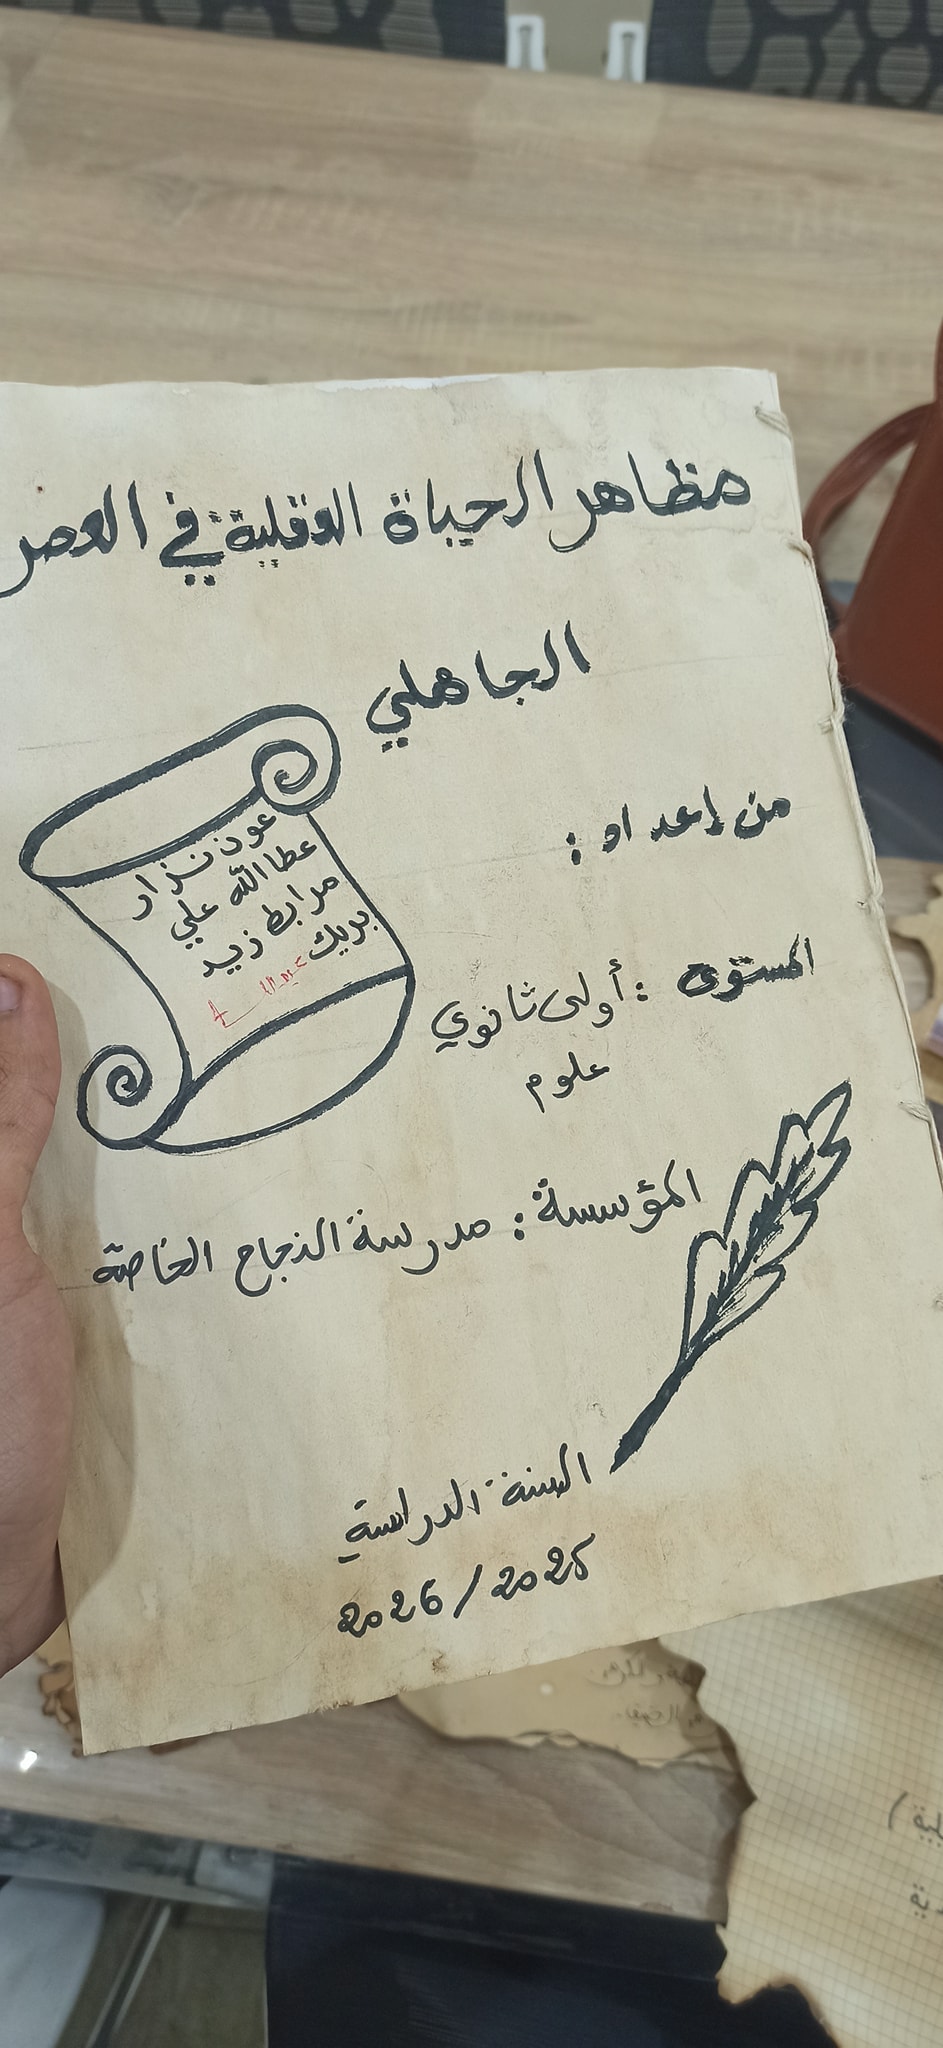 مظاهر الحياة العقلية في العصر
الجاهلي
من إعداد :
عون نزار
عطا الله علي
مرابط زيد
بريك
المستوى : أولى ثانوي
علوم
المؤسسة : مدرسة النجاح الخاصة
السنة الدراسية
2026/2025